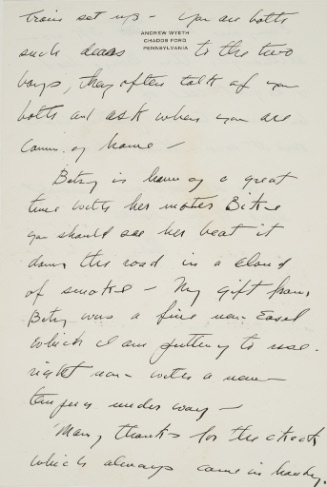 train set up - You are both
ANDREW WYETH
CHADDS FORD
PENNSYLVANIA
such dears to the two
boys, they often talk of you
both and ask when you are
coming home -
Betsy is having a great
time with her motor Bike
you should see her beat it
down the road in a cloud
of smoke - My gift from
Betsy was a fine new Easel
which I am putting to use
right now with a new
tempera under way -
Many thanks for the check
which always came in handy.